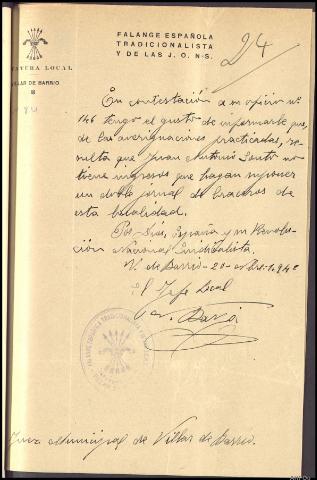 FALANGE ESPAÑOLA
TRADICIONALISTA
Y DE LAS J. O. N-S.
24
JEFATURA LOCAL
VILLAR DE BARRIO
En contestación a su oficio nº
146 tengo el gusto de informarle que,
de las averiguaciones practicadas, re-
sulta que Juan Antonio no
tiene ingresos que hagan suponer
un doble jornal de braceros de
esta localidad.
Por Dios, España y su Revolu-
ción Nacional Sindicalista
V. de Barrio - 20 -
El Jefe Local
FALANGE ESPAÑOLA TRADICIONALISTA
Juez Municipal de Villar de Barrio.